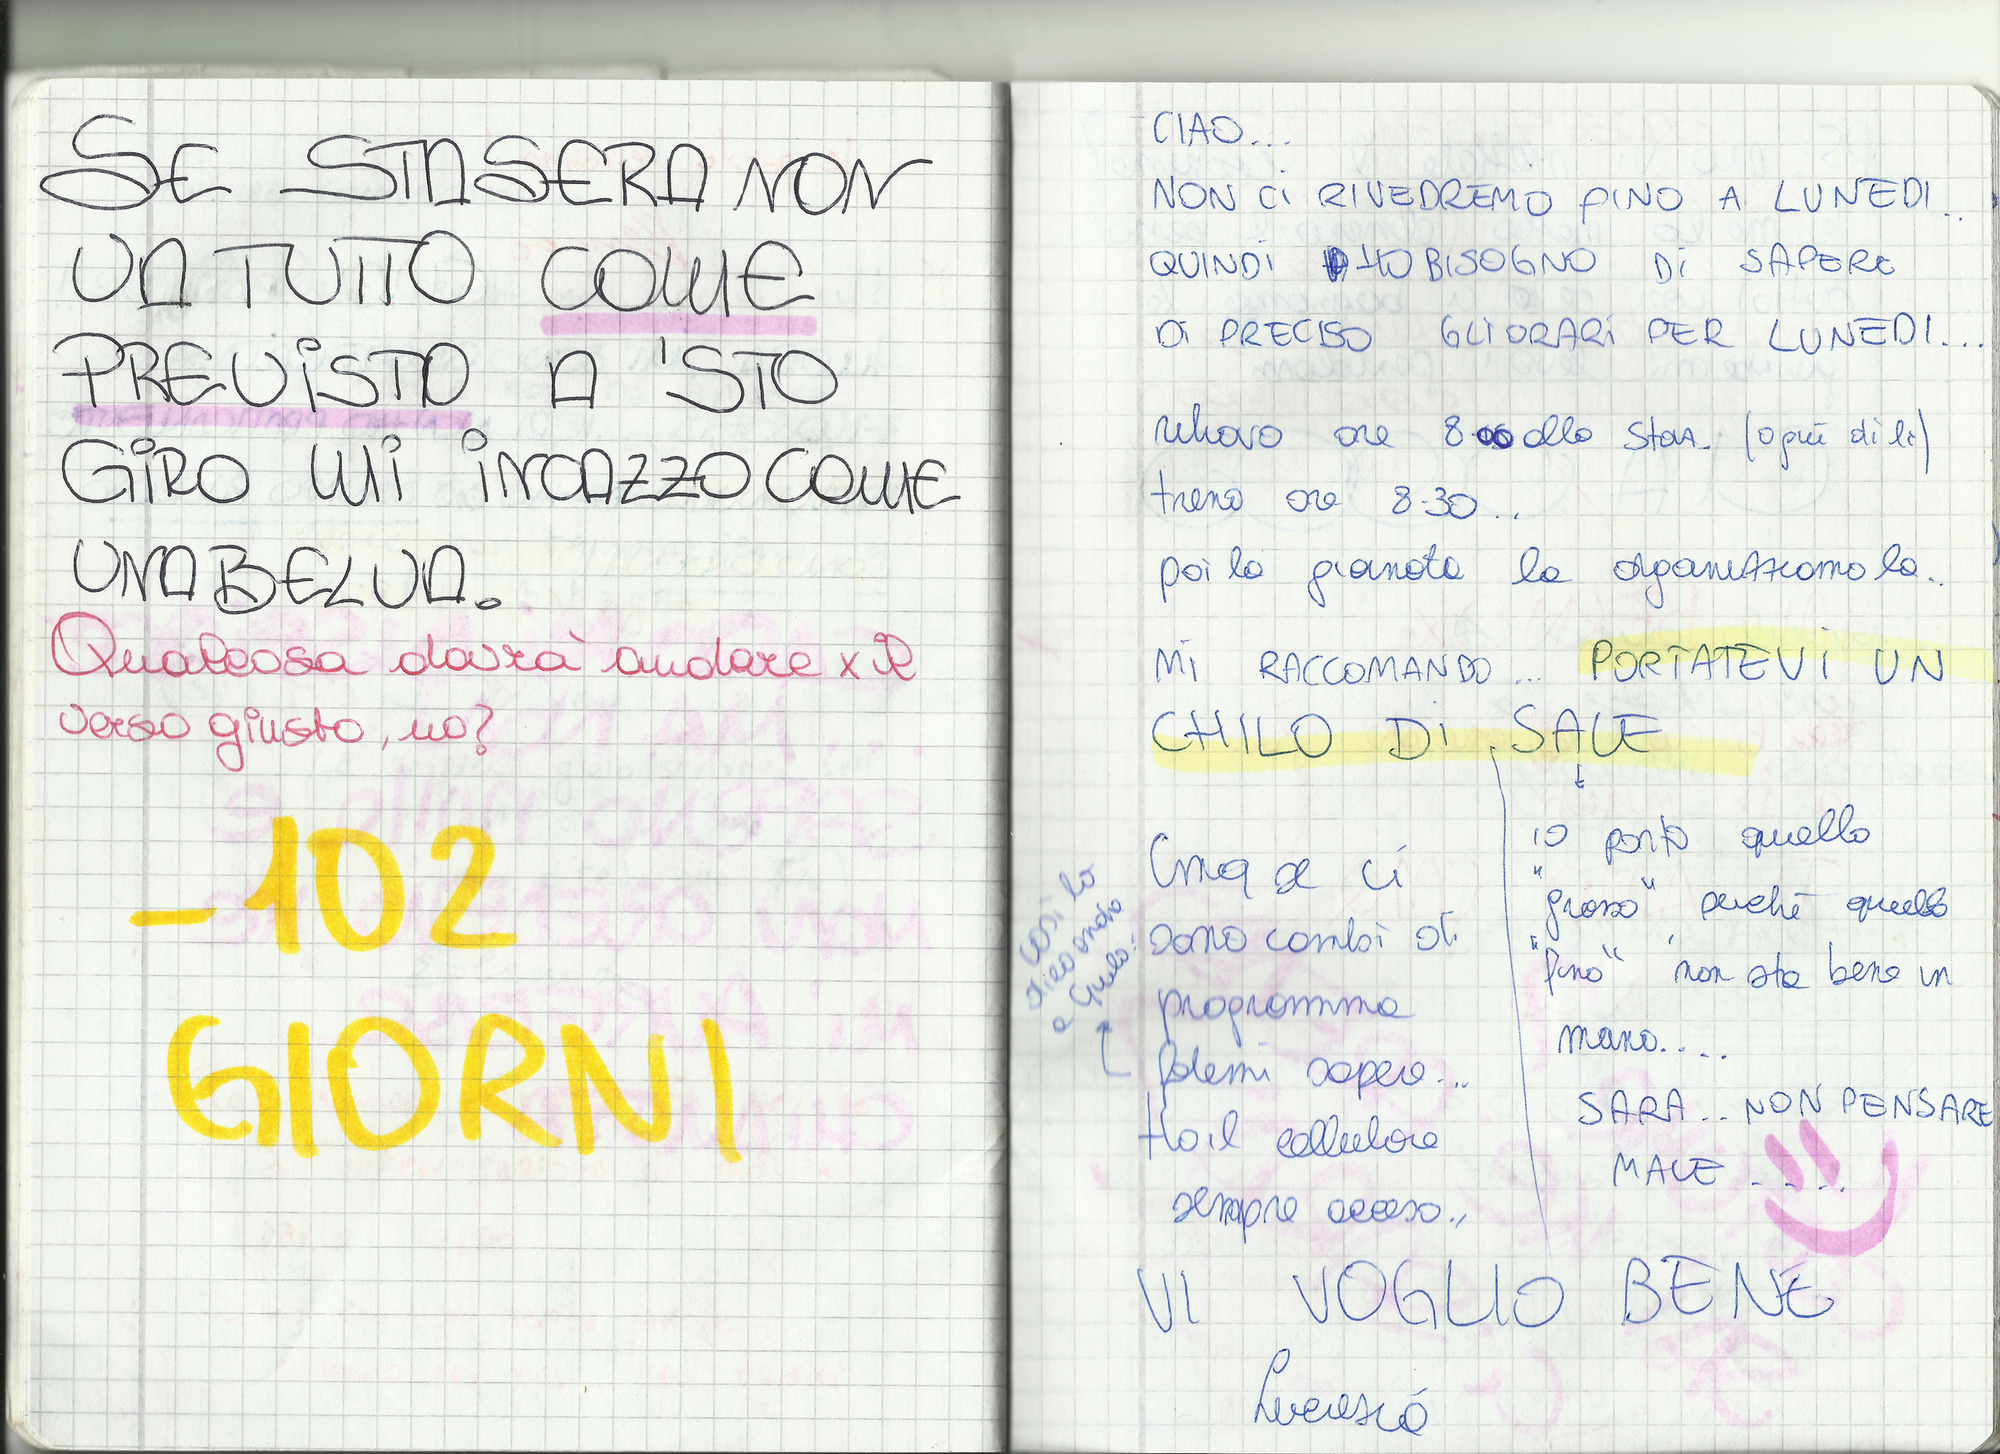 SE STASERA NON
VA TUTTO COME
PREVISTO A 'STO
GIRO MI INCAZZO COME
UNA BELVA.
Qualcosa dovrà andare x il
verso giusto, no?
-102
GIORNI
CIAO...
NON CI RIVEDREMO FINO A LUNEDI..
QUINDI HO BISOGNO DI SAPERE
DI PRECISO GLI ORARI PER LUNEDI...
ritrovo ore 8.00 alla staz. (o giù di lì)
treno ore 8.30..
poi la giornata la organizziamo la..
MI RACCOMANDO... PORTATEVI UN
CHILO DI SALE
Cmq se ci
sono cambi di
programma
fatemi sapere...
Ho il cellulare
sempre acceso..
così lo
dico anche
a
io porto quello
"grosso" perché quello
"fino" non sta bene in
mano....
SARA.. NON PENSARE
MALE.....
VI VOGLIO BENE